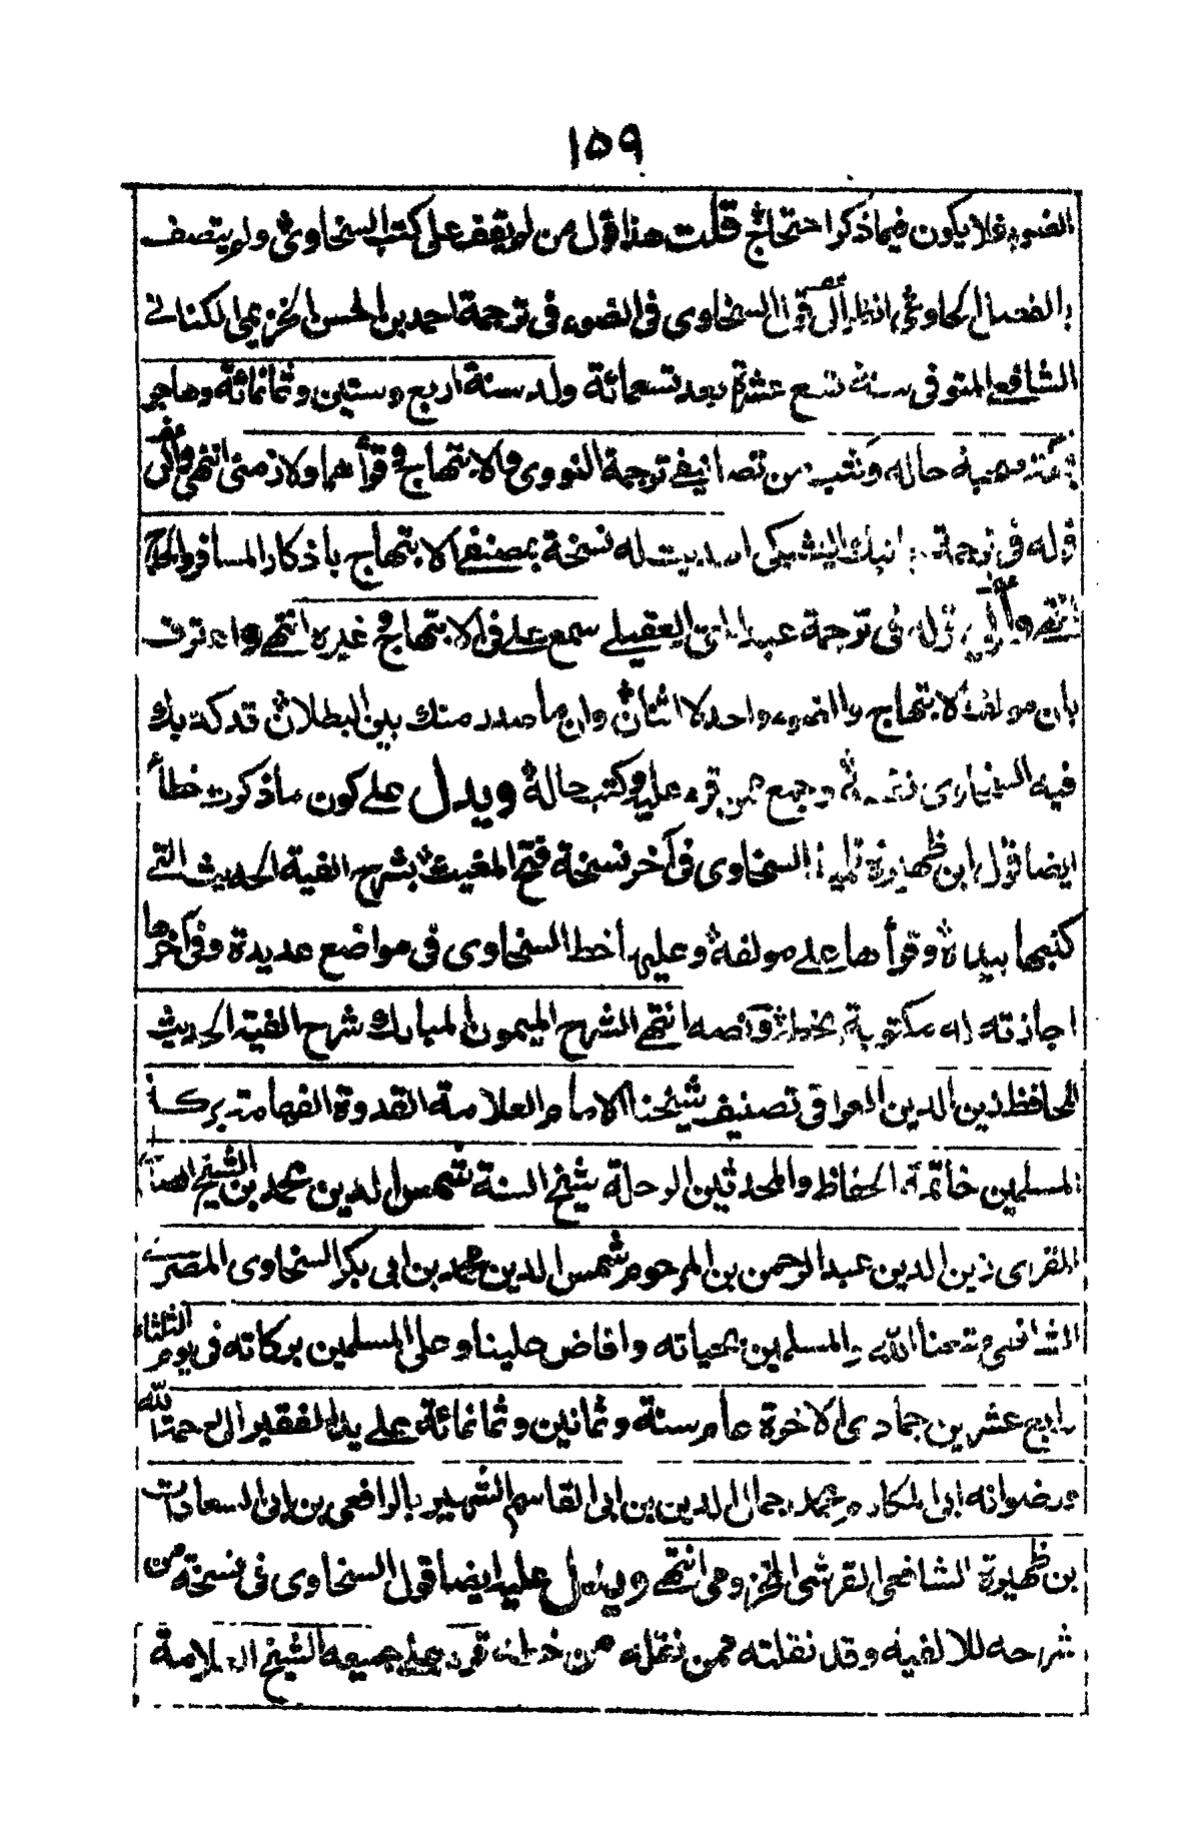 ١٥٩
الضوء فلا يكون فيما ذكر احتجاج قلت هذا قول من لم يقف على كتب السخاوى ولم يتصف
الى قول السخاوى فى الضوء فى ترجمة احمد بن الحسن الكنانى
الشافعى المتوفى سنة تسع عشرة بعد تسعمائة ولد سنة اربع وستين وثمانمائة وهاجر
حاله وكتب من تصانيفى ترجمة النووى والابتهاج وقرأهما ولازمنى انتهى والى
قوله فى ترجمة اهديت له نسخة بمصنفى الابتهاج باذكار المسافر الحاج
انتهى والى قوله فى ترجمة العقيلى سمع على فى الابتهاج وغيره انتهى واعترف
بان مولف الابتهاج والضوء واحد لا اثنان وان ما صدر منك بين البطلان قد كذبك
فيه السخاوى نفسه وجمع ممن قرء عليه وكتب حاله ويدل على كون ما ذكرت خطأ
ايضا قول ابن ظهيرة تلميذ السخاوى فى آخر نسخة فتح المغيث بشرح الفية الحديث التى
كتبها بيده وقرأها على مولفه وعليها خط السخاوى فى مواضع عديدة وفى آخرها
اجازته له مكتوبة بخطه ونصه انتهى الشرح الميمون المبارك شرح الفية الحديث
للحافظ زين الدين العراقى تصنيف شيخنا الامام العلامة القدوة الفهامة بركة
المسلمين خاتمة الحفاظ والمحدثين الرحلة شيخ السنة شمس الدين محمد بن الشيخ
المقرى زين الدين عبد الرحمن بن المرحوم شمس الدين محمد بن ابى بكر السخاوى المصرى
الشافعى متعنا الله والمسلمين بحياته وافاض علينا وعلى المسلمين بركاته فى يوم الثلثاء
رابع عشرين جمادى الاخرة عام سنة وثمانين وثمانمائة على يد الفقير الى رحمة الله
ورضوانه ابى المكارم محمد جمال الدين بن ابى القاسم الشهير بالرافعى بن ابى السعادات
بن ظهيرة الشافعى القرشى المخزومى انتهى ويدل عليه ايضا قول السخاوى فى نسخة من
شرحه للالفية وقد نقلته ممن نقله من خطه قرء على جميعه الشيخ العلامة